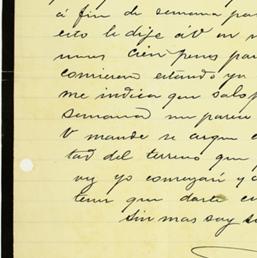 á fin de semana pa
esto le dije á V en m
unos cien pesos par
comieran estando yo
me indica que salo
semana me parec
V mande se saque e
tad del terreno que
rey yo comenzari y a
tener que darle e
sin mas soy s